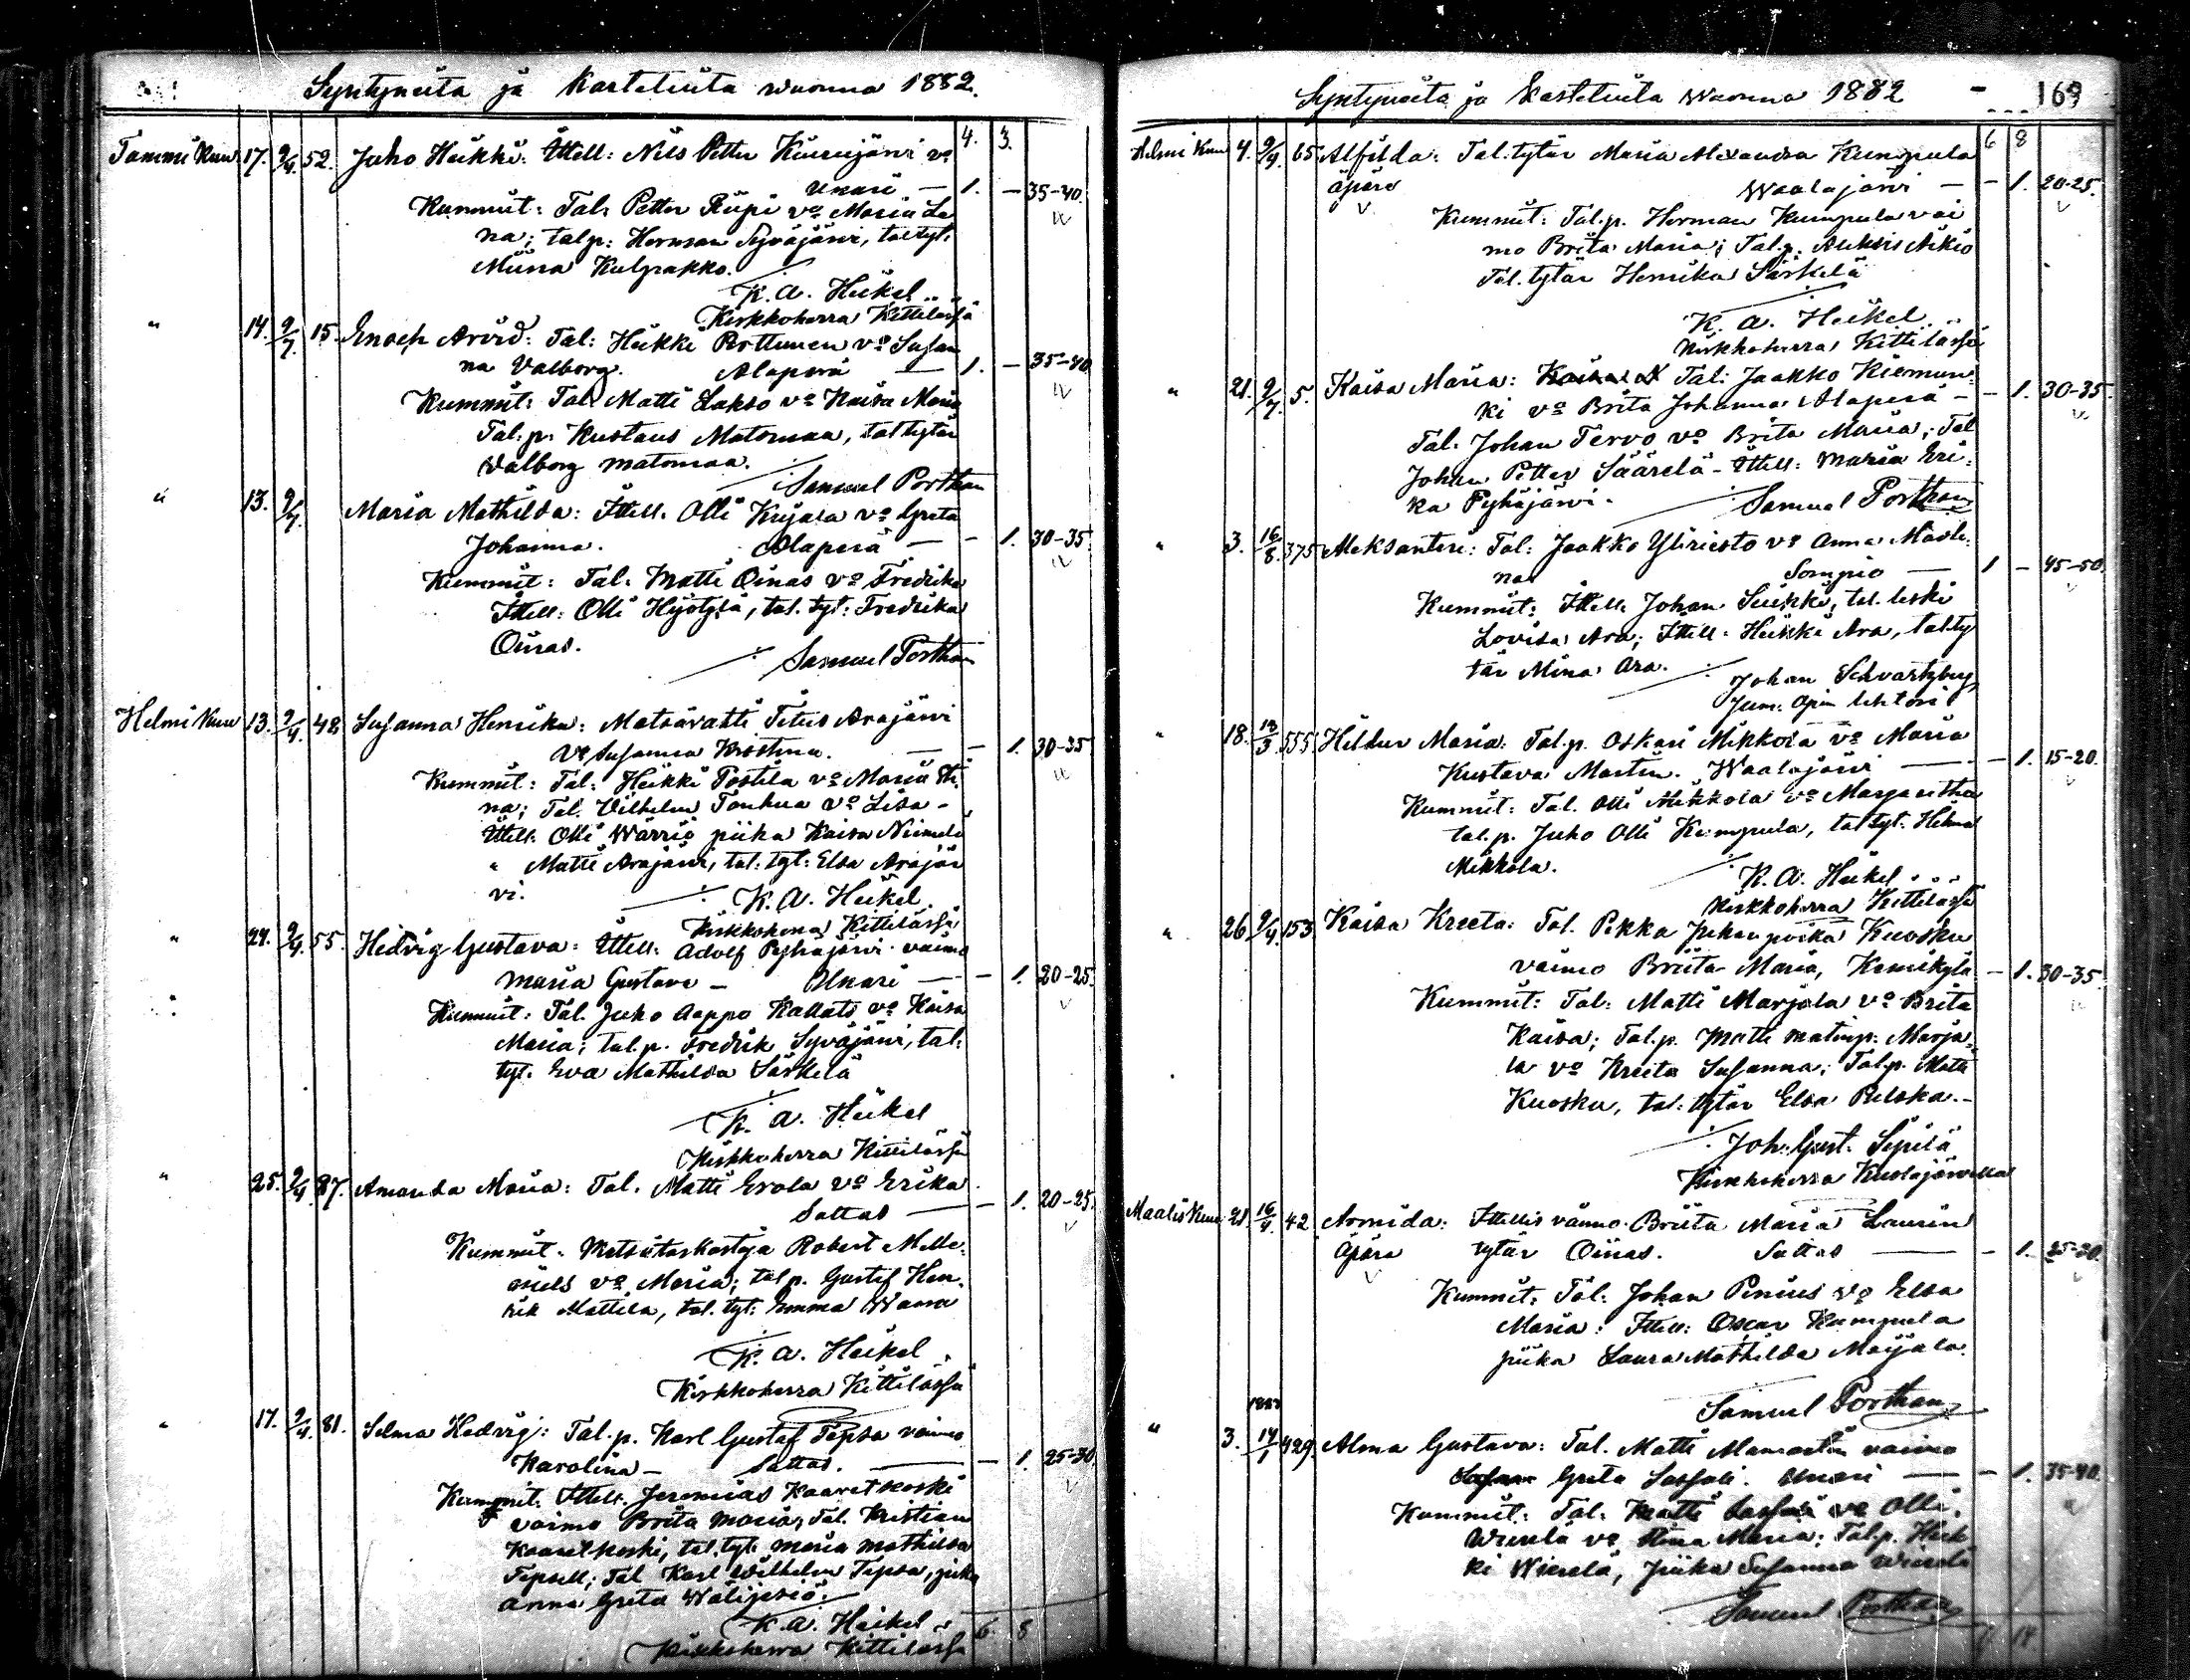 Syntyneitä ja Kastetuita vuonna 1882.
4. 3.
Tammi Kuu 17. 9/4. 52. Juho Heikki: Ittell: Nils Petter Kuusijärvi vo
Unari — 1. — 35-40.
Kummit: Tal: Petter Riipi vo Maria Le
na; talp: Herman Syväjärvi, tal tyt:
Miina Kulpakko.
K. A. Heikel
Kirkkoherra Kittilässä
" 14. 9/7. 15. Enoch Arvid: Tal: Heikki Pottunen vo Susan
na Valborg. Alaperä — 1. — 35-40
Kummit: Tal. Matti Lakso vo Kaisa Maria
Tal. p. Kustaus Matomaa, tal tytär
Valborg Matomaa.
Samuel Porthan
" 13. 9/7. Maria Mathilda: Ittell. Olli Kujala vo Greta
Johanna. Alaperä — - 1. 30-35.
Kummit: Tal. Matti Oinas vo Fredrika
Ittell: Olli Hyötylä, tal. tyt: Fredrika
Oinas.
Samuel Porthan
Helmi Kuu 13. 9/4. 48. Susanna Henrika: Metsävahti Titus Arajärvi
vo Susanna Kristina. — - 1. 30-35
Kummit: Tal: Heikki Postila vo Maria Sti
na; Tal. Vilhelm Tonhua vo Lisa -
Ittell. Olli Wärriö piika Kaisa Niemelä
" Matti Arajärvi, tal. tyt: Elsa Arajär
vi. K. A. Heikel.
Kirkkoherra Kittilässä
" 24. 9/4. 55. Hedvig Gustava: Ittell: Adolf Pyhäjärvi vaimo
Maria Gustava — Unari — - 1. 20-25.
Kummit: Tal. Juho Aappo Kallats vo Kaisa
Maria; tal. p. Fredrik Syväjärvi, tal:
tyt. Eva Mathilda Särkelä
K. A. Heikel
Kirkkoherra Kittilässä
" 25. 9/4. 87. Amanda Maria: Tal. Matti Erola vo Erika
Sattas — - 1. 20-25.
Kummit: Metsätarkastaja Robert Melle
niels vo Maria; tal p. Gustaf Hen
rik Mattila, tal. tyt: Emma Waara
K. A. Heikel
Kirkkoherra Kittilässä
" 17. 9/4. 81. Selma Hedvig: Tal. p. Karl Gustaf Tepsa vaimo
Karolina — Sattas. — - 1. 25-30.
Kummit: Ittell. Jeremias Kaaretkoski
vaimo Brita Maria, Tal. Kristian
Kaaretkoski, tal. tyt: Maria Mathilda
Tepsell; Tal Karl Wilhelm Tepsa, piika
Anna Greta Wälijesiö.
K. A. Heikel 6. 8
Kirkkoherra Kittilässä
Syntyneitä ja Kastetuita Wuonna 1882 - 169
6 8
Helmi Kuu 4. 9/4. 65. Alfilda: Tal. tytär Maria Alexandra Kumpula
äpärä Waalajärvi — - 1. 20-25.
Kummit: Tal. p. Herman Kumpula vai
mo Brita Maria; Tal. p. Aleksis Äikiö
Tal. tytär Henrika Särkelä
K. A. Heikel
Kirkkoherra Kittilässä
" 21. 9/7. 5. Kaisa Maria: Tal: Jaakko Kiemun
ki vo Brita Johanna Alaperä — - 1. 30-35.
Tal. Johan Tervo vo Brita Maria; Tal
Johan Petter Säärelä - Ittell: Maria Eri
ka Pyhäjärvi.
Samuel Porthan
" 3. 16/8. 375 Aleksanteri: Tal: Jaakko Yliriesto vo Anna Mada
na Sompio — 1 - 45-50.
Kummit: Ittell Johan Suikki, tal. leski
Lovisa Ara; Ittell: Heikki Ara, tal ty
tär Mina Ara.
Johan Schwartzberg
Jum: Opin lehtori
" 18. 12/3 555 Hildur Maria: Tal. p. Oskari Mikkola vo Maria
Kustava Martin. Waalajärvi — - 1. 15-20.
Kummit: Tal. Olli Mikkola vo Margareetha
tal. p. Juho Olli Kumpula, tal tyt. Hilma
Mikkola.
K. A. Heikel
Kirkkoherra Kittilässä
" 26 9/4 153 Kaisa Kreeta: Tal. Pekka Juhanpoika Kuosku
vaimo Briita Maria, Kemikylä - 1. 30-35.
Kummit: Tal: Matti Marjala vo Brita
Kaisa; Tal. p. Matti Matinp. Marja
la vo Kreeta Susanna; Tal. p. Matti
Kuosku, tal: tytär Elsa Pulska.-
Joh: Gust. Sipilä
Kirkkoherra Kuolajärvella
Maalis Kuu 21. 16/4. 42 Armida: Ittellis vaimo Briita Maria Laurin
Äpärä tytär Oinas. Sattas — - 1. 25-30.
Kummit: Tal: Johan Pinius vo Elsa
Maria: Ittell: Oscar Kumpula
piika Laura Mathilda Maijala.
Samuel Porthan
1883
" 3. 14/1 429. Alma Gustava: Tal. Matti vaimo
Greta Sassali. Unari — - 1. 35-40.
Kummit: Tal: Matti Sassali vo Olli
Wierelä vo Stina Maria; Tal. p. Heik
ki Wierelä, piika Susanna Wierelä
Samuel Porthan
14